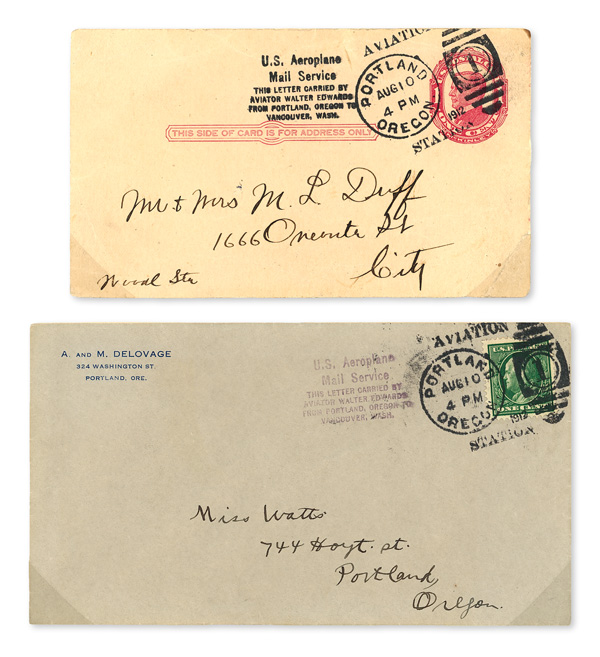 U.S. Aeroplane
Mail Service
THIS LETTER CARRIED BY
AVIATOR WALTER EDWARDS
FROM PORTLAND, OREGON TO
VANCOUVER, WASH.
AVIATION
PORTLAND
AUG 10
4 PM
OREGON
1912
STATION
1
THIS SIDE OF CARD IS FOR ADDRESS ONLY
Mr & Mrs M. L. Duff
1666 Oneonta St
City
A. AND M. DELOVAGE
324 WASHINGTON ST.
PORTLAND, ORE.
U.S. Aeroplane
Mail Service
THIS LETTER CARRIED BY
AVIATOR WALTER EDWARDS
FROM PORTLAND, OREGON
VANCOUVER, WASH.
AVIATION
PORTLAND
AUG 10
4 PM
OREGON
1912
STATION
1
ONE CENT
Miss Watts
744 Hoyt. st.
Portland,
Oregon.